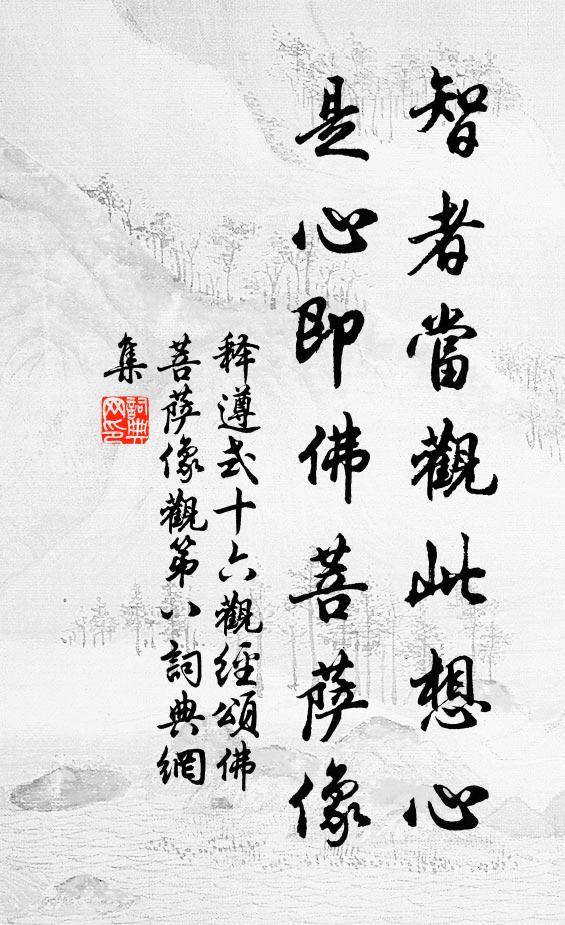 智者當觀此想心
是心即佛菩薩像
释遵式十六觀經頌佛
菩薩像觀第八詞典網
集
詞典
网印